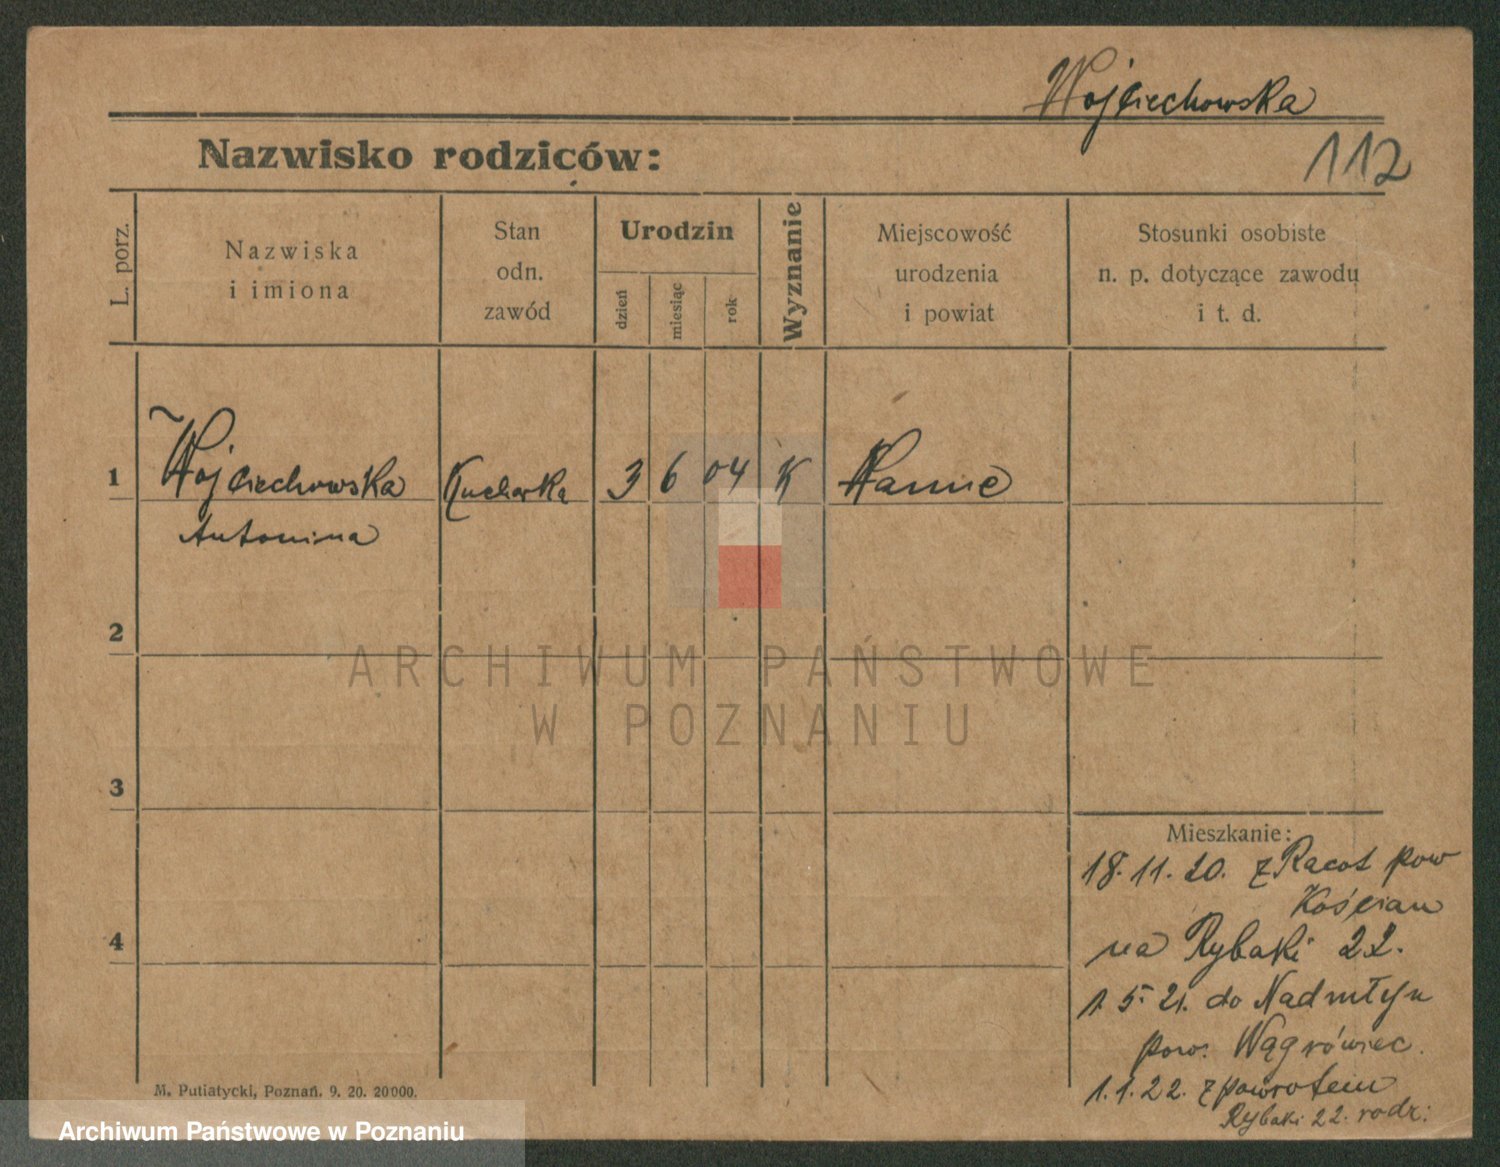 Wojciechowska
112
Nazwisko rodziców:
L. porz.
Nazwiska
i imiona
Stan
odn.
zawód
Urodzin
dzień
miesiąc
rok
Wyznanie
Miejscowość
urodzenia
i powiat
Stosunki osobiste
n. p. dotyczące zawodu
i t. d.
1 Wojciechowska Kucharka 3 6 04 K
Antonina
2
ARCHIWUM PAŃSTWOWE
W POZNANIU
3
4
Mieszkanie:
18. 11. 20. z Racot pow
Kościan
na Rybaki 22.
1. 5. 21. do Nadmłyn
pow. Wągrówiec.
1. 1. 22. z powrotem
Rybaki 22. rodz:
M. Putiatycki, Poznań. 9. 20. 20000.
Archiwum Państwowe w Poznaniu